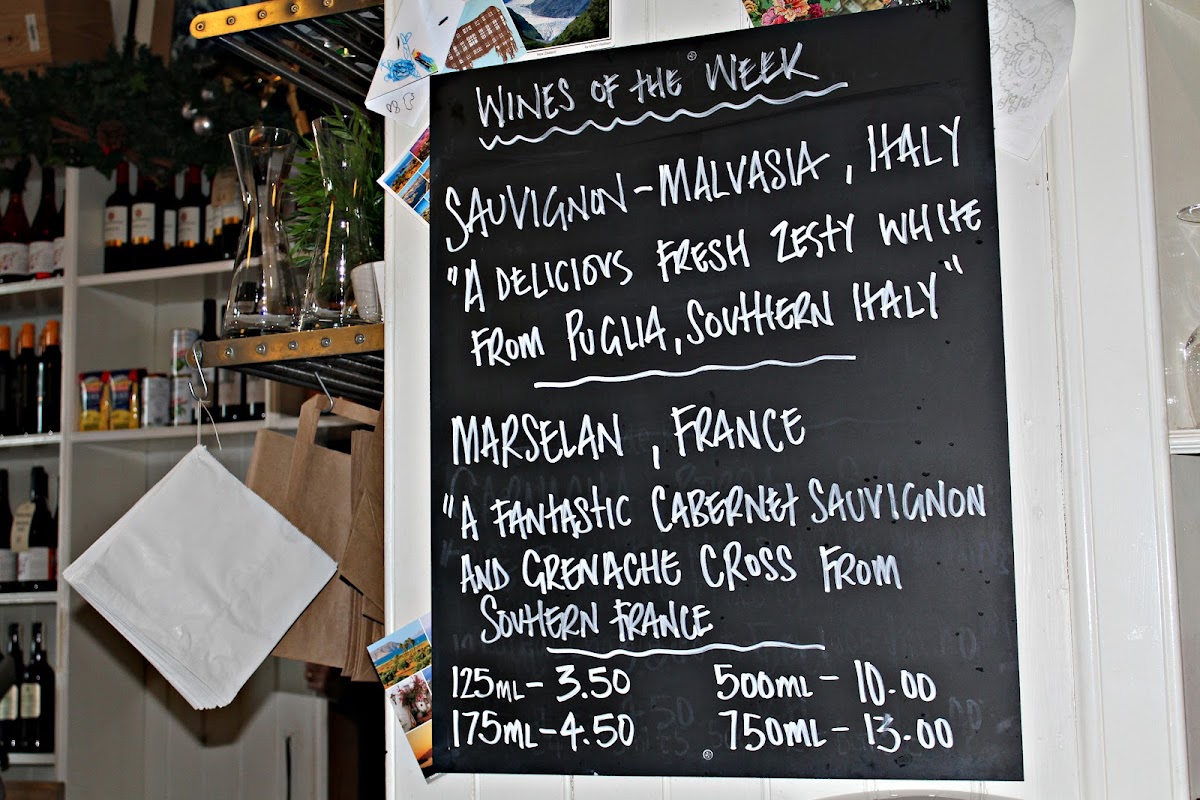 WINES OF THE WEEK
SAUVIGNON-MALVASIA, ITALY
"A DELICIOUS FRESH ZESTY WHITE
FROM PUGLIA, SOUTHERN ITALY"
MARSELAN, FRANCE
"A FANTASTIC CABERNET SAUVIGNON
AND GRENACHE CROSS FROM
SOUTHERN FRANCE
125ML- 3.50 500ML- 10.00
175ML-4.50 750ML- 13.00